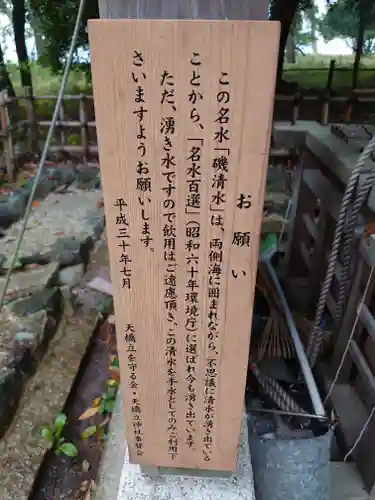 お願い
この名水「磯清水」は、両側海に囲まれながら、不思議に清水が湧き出ている
ことから、「名水百選」（昭和六十年環境庁）に選ばれて今も湧き出ています。
ただ、湧き水ですので飲用はご遠慮頂き、この清水を手水としてのみご利用下
さいますようお願いします。
平成三十年七月
天橋立を守る会・天橋立神社奉賛会